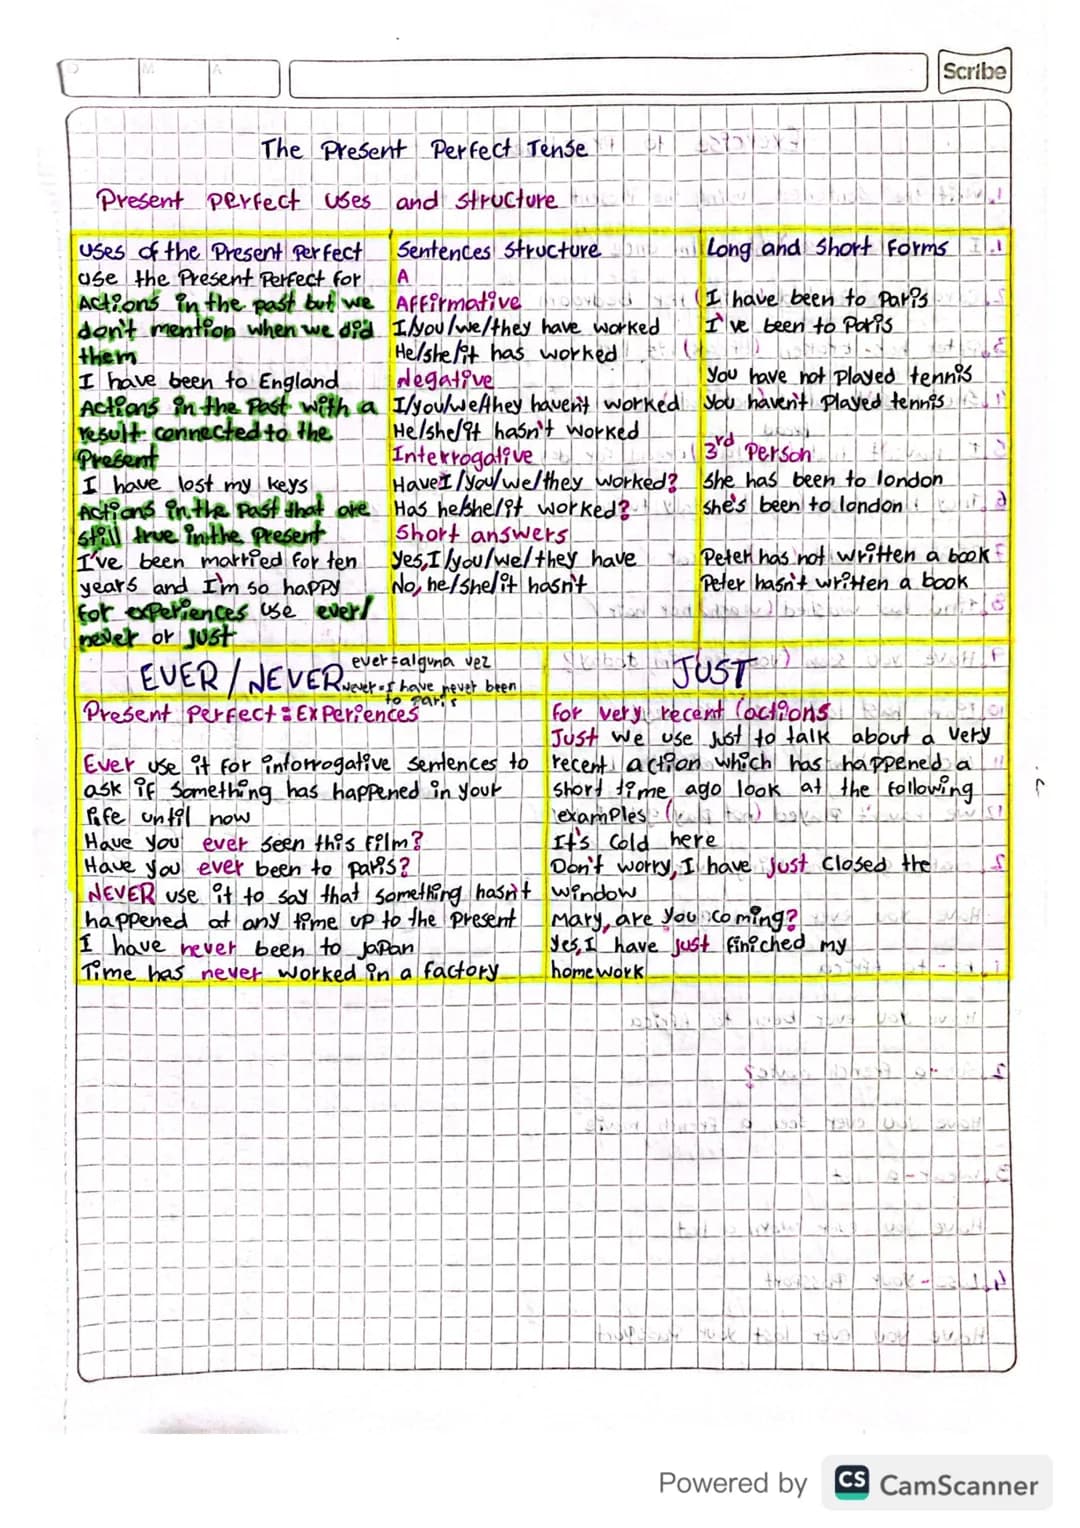 Scribe
The Present Perfect Tense
Present perfect uses and structure
Uses of the Present Perfect
Use the Present Perfect for
Actions in the past but we
don't mention when we did
them
I have been to England
Actions in the Past with a
result connected to the
Present
I have lost my keys
Actions in the Past that are
still true in the present
I've been married for ten
years and I'm so happy
for experiences use ever/
never or just
Sentences Structure
A
Affirmative
I/you/we/they have worked
He/she/it has worked
Negative
I/you/we/they haven't worked
He/she/it hasn't worked
Interrogative
Have I/you/we/they worked?
Has he/she/it worked?
Short answers
Yes, I/you/we/they have
No, he/she/it hasn't
Long and Short Forms
I have been to Paris
I've been to Paris
You have not Played tennis
you haven't Played tennis
3rd Person
she has been to london
she's been to london
Peter has not written a book
Peter hasn't written a book
EVER/NEVER
ever=alguna vez
Never=I have never been
to Paris
Present Perfect: Experiences
Ever use it for intorrogative sentences to
ask if something has happened in your
life until now
Have you ever seen this film?
Have you ever been to paris?
NEVER use it to say that something hasn't
happened at any time up to the present
I have never been to Japan
Time has never worked in a factory
JUST
for very recent (actions
Just we use just to talk about a very
recent action which has happened a
short time ago look at the following
examples
It's cold here
Don't worry, I have just closed the
window
Mary, are you coming?
Yes, I have just finiched my
homework
Powered by CS CamScanner